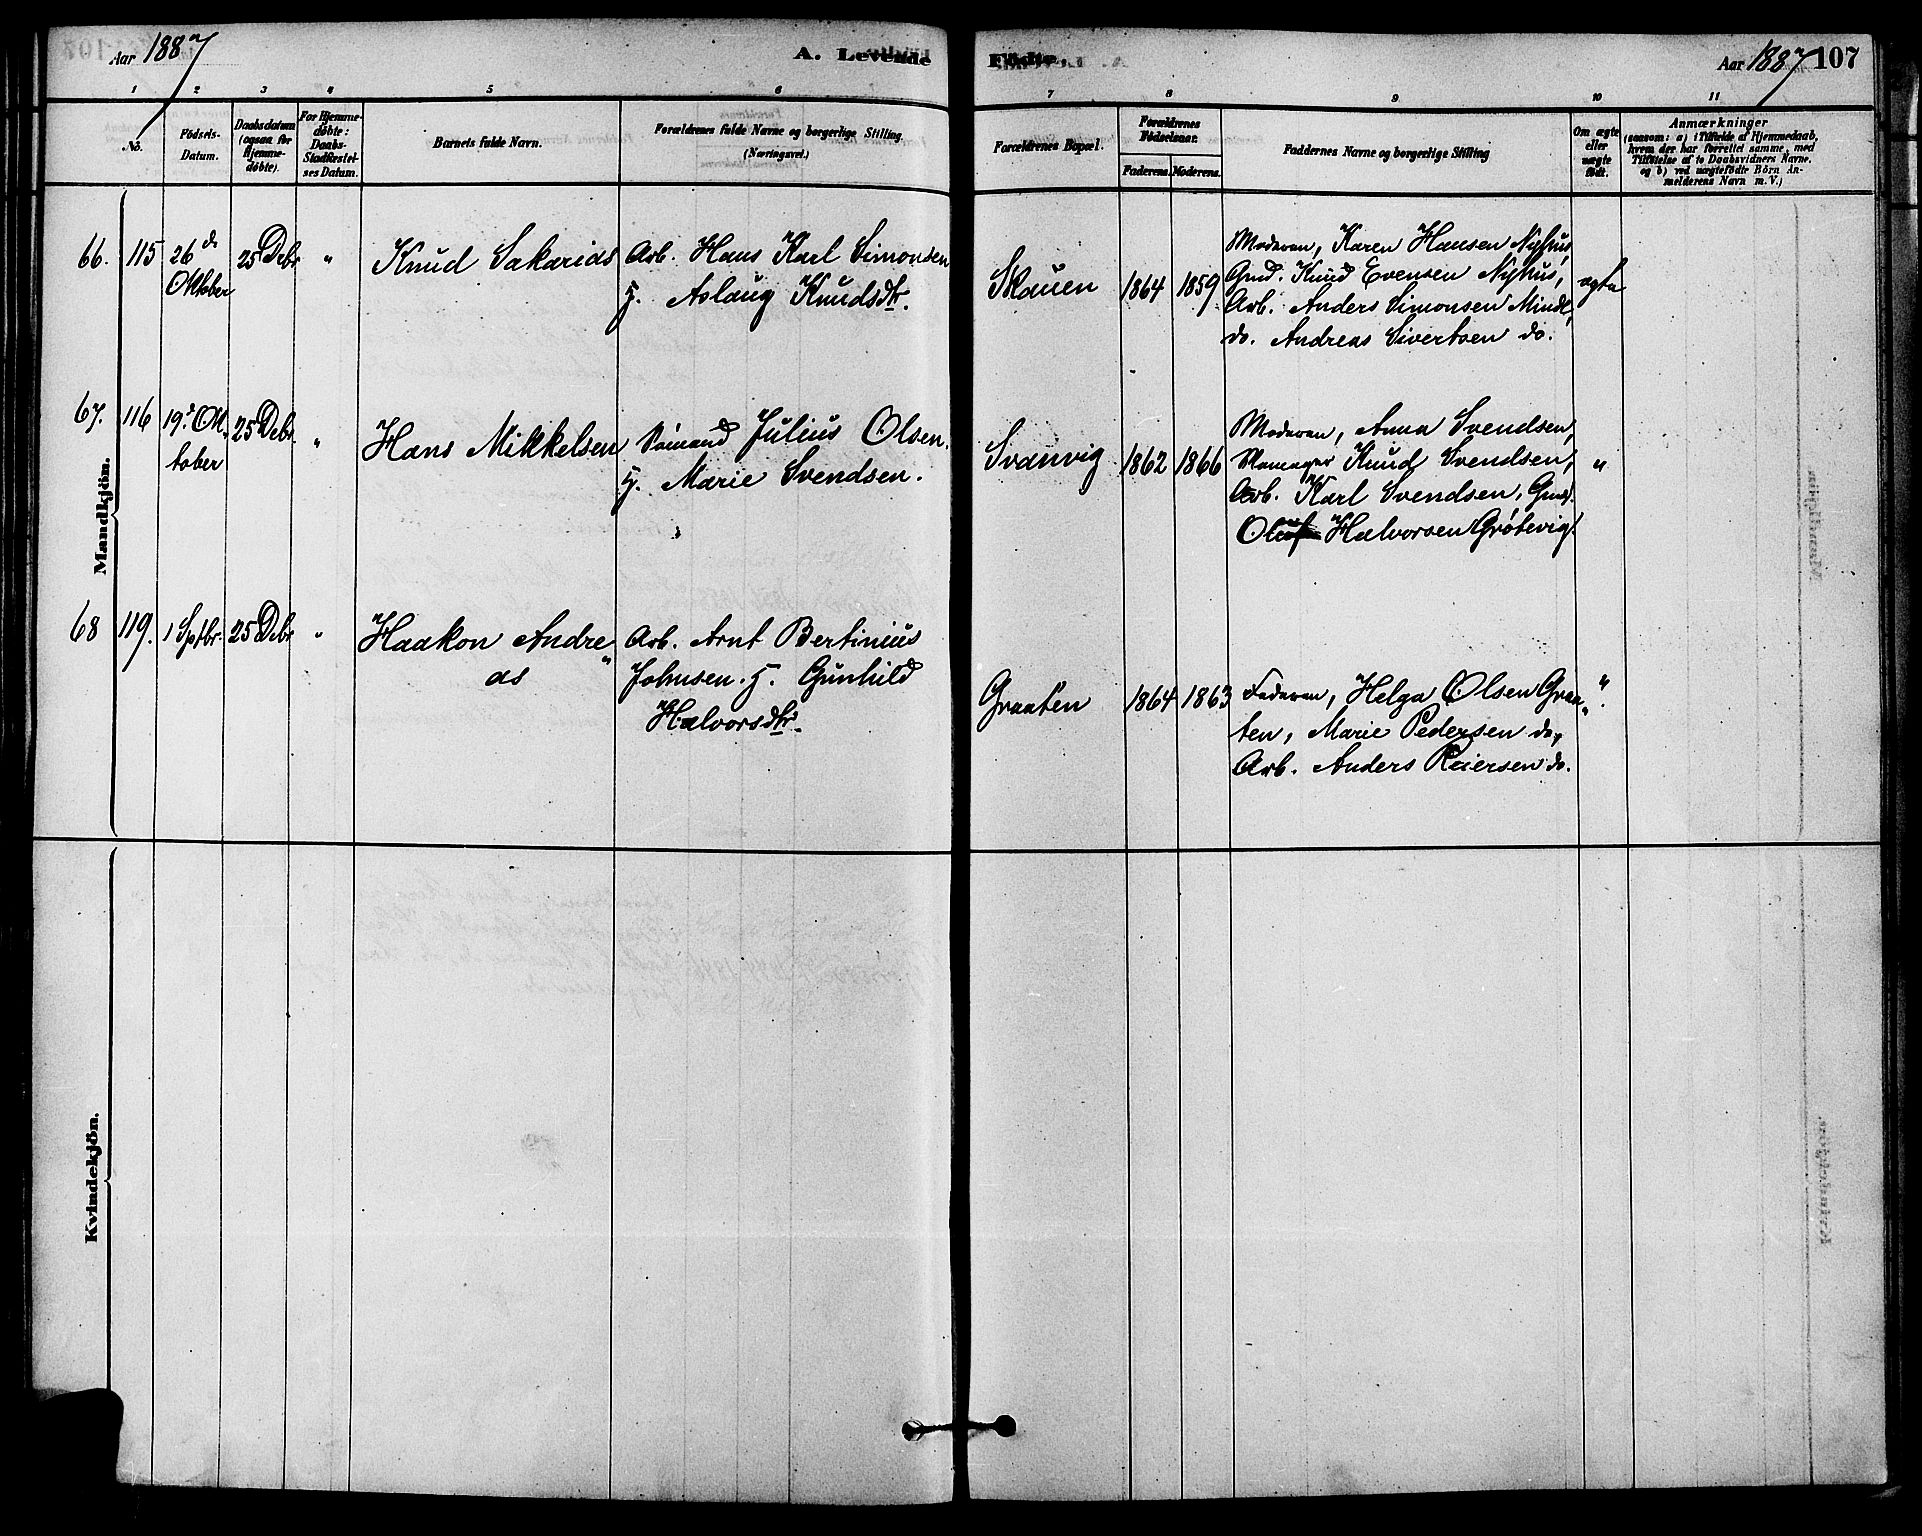 Aar 1887
A. Levende
Födte.
Aar 1887
107
1
2
3
4
5
6
7
8
9
10
11
No.
Födsels-
Datum.
Daabsdatum
(ogsaa for
Hjemme-
døbte).
For Hjemme-
døbte:
Daabs-
Stadfæstel-
ses Datum.
Barnets fulde Navn.
Forældrenes fulde Navne og borgerlige Stilling.
(Næringsvei.)
Forældrenes Bopæl.
Forældrenes
Födselsaar.
Faderens.
Moderens.
Faddernes Navne og borgerlige Stilling
Om ægte
eller
uægte
født.
Anmærkninger
(saasom: a) i Tilfælde af Hjemmedaab,
hvem der har forrettet samme, med
Tilföielse af to Daabsvidners Navne,
og b) ved uægtefødte Börn An-
melderens Navn m. V.)
Mandkjön.
66.
115
26de
Oktober
25 Debr
"
Knud Sakarias
Arb. Hans Karl Simonsen
g. Aslaug Knudsdtr.
Skauen
1864
1859
Moderen, Karen Hansen Nyhus,
Gmd. Knud Evensen Nyhus,
Arb. Anders Simonsen Mindl,
do. Andreas Sivertsen do.
ægte
67.
116
19de Ok-
tober
25 Debr.
"
Hans Mikkelsen
Sömand Julius Olsen
g. Marie Svendsen.
Svanvig
1862
1866
Moderen, Anna Svendsen,
Skomager Knud Svendsen,
Arb. Karl Svendsen, Gmd.
Oluf Halvorsen Grøtevig.
"
68
119.
1 Septbr.
25 Debr
"
Haakon Andre
as
Arb. Arnt Bertinius
Johnsen. g. Gunhild
Halvorsdtr.
Graaten
1864
1863
Faderen, Helga Olsen Graa-
ten, Marie Pedersen do,
Arb. Anders Reiersen do.
"
Kvindekjön.